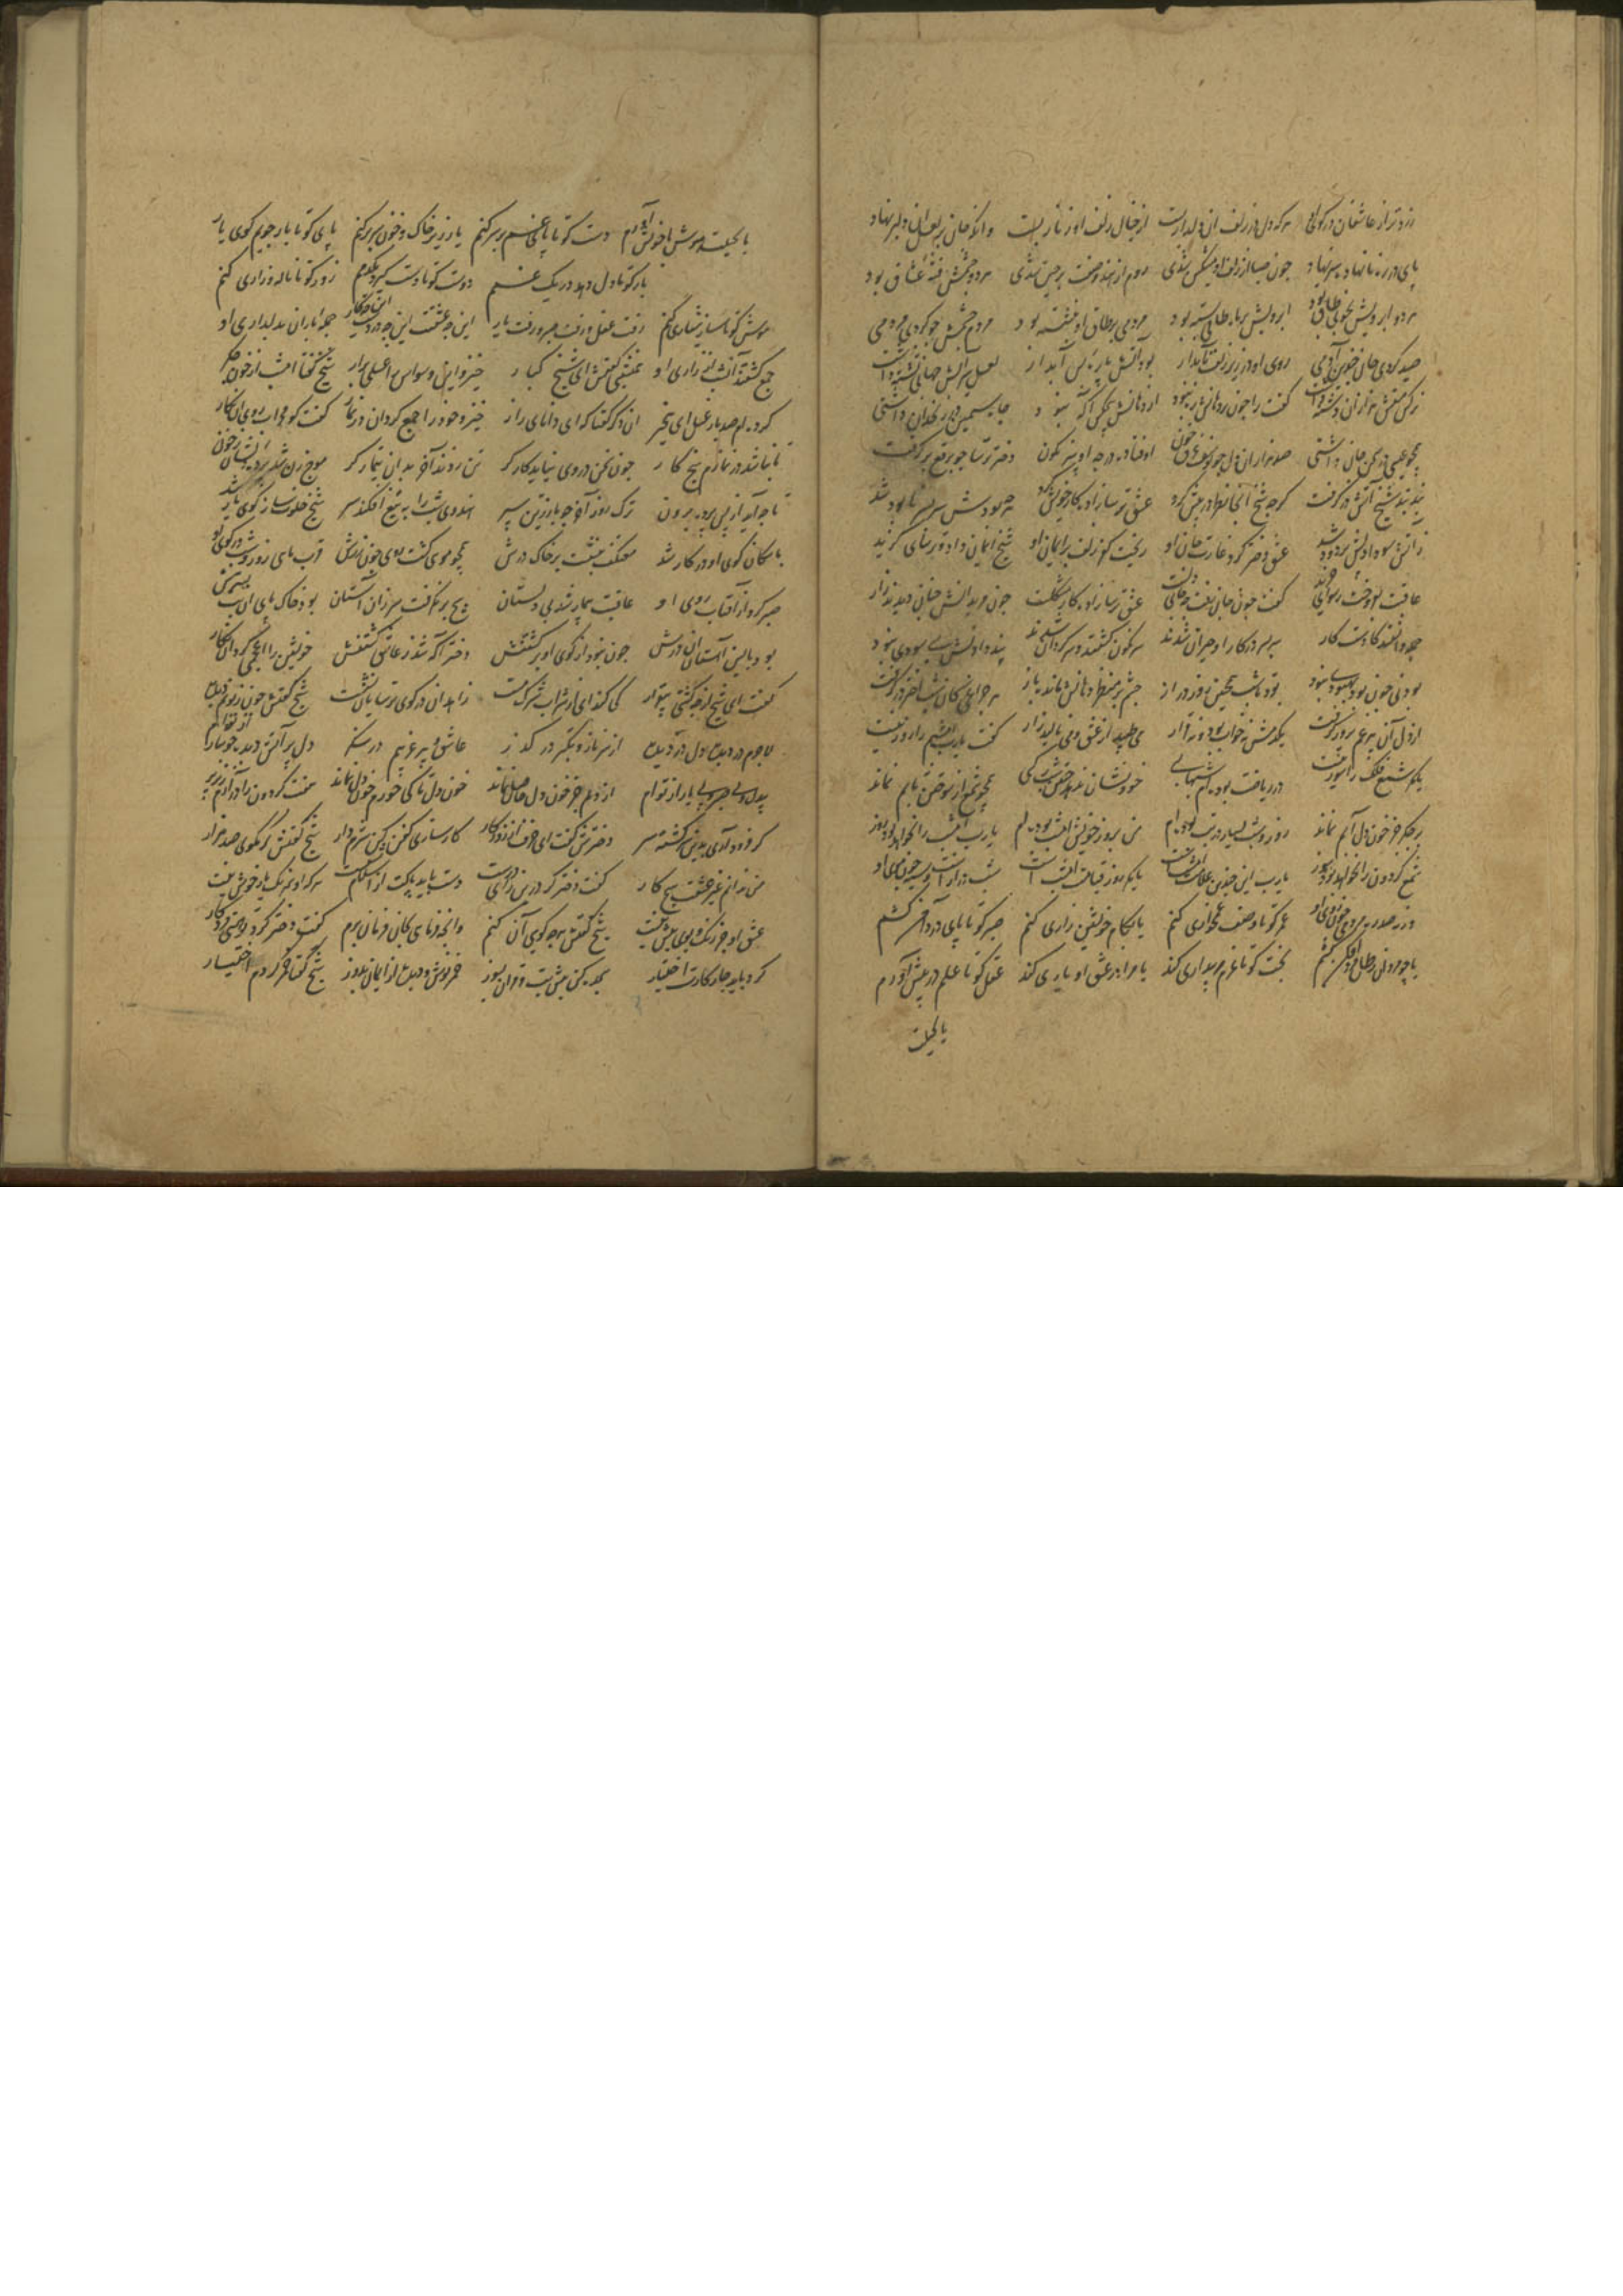 زردتر از عاشقان در کوی او هر که دل در زلف آن دلدار بست از خیال زلف او زنار بست وانکه جان بر لعل آن دلبر نهاد
پای در ره نانهاده سر نهاد چون صبا از زلف او مشکین شدی روم از آن هندو صفت پرچین شدی هر دو چشمش فتنه عشاق بود
هر دو ابرویش بخوبی طاق بود ابرویش بر ماه طاقی بسته بود مردمی بر طاق او بنشسته بود مردم چشمش چو کردی مردمی
صید کردی جان چندین آدمی روی او در زیر زلف تابدار بود آتش پاره بس آبدار لعل سیرابش جهانی تشنه داشت
نرگس مستش هزاران دشنه داشت گفت را چون بر دهانش ره نبود از دهانش هیچکس آگه نبود چاه سیمین در زنخدان داشتی
همچو عیسی در سخن جان داشتی صد هزاران دل چو یوسف غرق خون اوفتاده در چه او سرنگون دختر ترسا چو برقع برگرفت
بند بند شیخ آتش درگرفت گرچه شیخ آنجا نظر در پیش کرد عشق ترسازاده کار خویش کرد هرچه بودش سر بسر نابود شد
ز آتش سودا دلش پر دود شد عشق دختر کرد غارت جان او ریخت کفر زلف بر ایمان او شیخ ایمان داد و ترسایی گزید
عافیت بفروخت رسوایی خرید گفت چون جان رفت چه جای دلست عشق ترسازاده کار مشکلست چون مریدانش چنان دیدند زار
جمله دانستند کافتادست کار سر بسر در کار او حیران شدند سرنگون گشتند و سرگردان شدند پند دادندش بسی سودی نبود
بودنی چون بود بهبودی نبود بود تا شب همچنین روز دراز چشم بر منظر دهانش مانده باز هر چراغی کان شب اختر درگرفت
از دل آن پیر غمخور درگرفت یکدمش نه خواب بود و نه قرار می طپید از عشق و می نالید زار گفت یارب امشبم را روز نیست
یا مگر شمع فلک را سوز نیست در ریاضت بوده ام شبها بسی خود نشان ندهد چنین شبها کسی همچو شمع از سوختن تابم نماند
بر جگر جز خون دل آبم نماند روز و شب بسیار در تب بوده ام من بروز خویش امشب بوده ام یارب امشب را نخواهد بود روز
شمع گردون را نخواهد بود سوز یارب این چندین علامت امشبست یا مگر روز قیامت امشبست شب درازست و سیه چون موی او
ورنه صد ره مردمی بی روی او عمر کو تا وصف غمخواری کنم یا بکام خویشتن زاری کنم صبر کو تا پای در دامن کشم
یا چو مردان رطل مردافکن کشم بخت کو تا عزم بیداری کند یا مرا در عشق او یاری کند عقل کو تا علم در پیش آورم
یا بحیلت
یا بحیلت هوش با خویش آورم دست کو تا پای غم بر سر کنم یا ز زیر خاک و خون سر برکنم پای کو تا باز جویم کوی یار
یار کو تا دل دهد در یک غمم دوست کو تا دست گیرد یکدمم زور کو تا ناله و زاری کنم
هوش کو تا ساز هشیاری کنم رفت عقل و رفت صبر و رفت یار این چه عشقست این چه دردست این چه کار جمله یاران بدلداری او
جمع گشتند آن شب از زاری او همنشینی گفتش ای شیخ کبار خیز و این وسواس را غسلی برآر شیخ گفتا امشب از خون جگر
کرده ام صد بار غسل ای بیخبر آن دگر گفتا که ای دانای راز خیز و خود را جمع گردان در نماز گفت کو محراب روی آن نگار
تا نباشد در نمازم هیچ کار
تا چه آید از پس پرده برون ترک روز آخر چو با زرین سپر هندوی شب را به تیغ افکند سر شیخ خلوت ساز کوی یار شد
با سگان کوی او در کار شد معتکف بنشست بر خاک درش همچو موی گشت روی چون مهش قرب ماهی روز و شب در کوی او
صبر کرد از آفتاب روی او عاقبت بیمار شد بی دلستان هیچ بر نگرفت سر زان آستان بود خاک پای آن بت بسترش
بود بالین آستان آن درش چون نبود از کوی او برگشتنش دختر آگه شد ز عاشق گشتنش خویشتن را اعجمی کرد آن نگار
گفت ای شیخ از چه گشتی بیقرار کی کند ای از شراب شرک مست زاهدان در کوی ترسایان نشست شیخ گفتش چون زبونم دیده
لاجرم دزدیده دل دزدیده از سر ناز و تکبر در گذر عاشق و پیر و غریبم در نگر
خون دل تا کی خورم چون دل نماند
گر فرود آری بدین سرگشته سر دخترش گفت ای خرف از روزگار کار سازی کفن کن شرم دار شیخ گفتش گر بگویی صد هزار
من ندارم غیر عشقت هیچ کار گفت دختر گر درین کاری درست دست باید پاکت از اسلام شست هر که او همرنگ یار خویش نیست
عشق او جز رنگ و بویی بیش نیست شیخ گفتش هرچه گویی آن کنم وانچه فرمایی بجان فرمان برم گفت دختر گر تو هستی مرد کار
کرد باید چار کارت اختیار سجده کن پیش بت و قرآن بسوز خمر نوش و دیده از ایمان بدوز شیخ گفتا خمر کردم اختیار